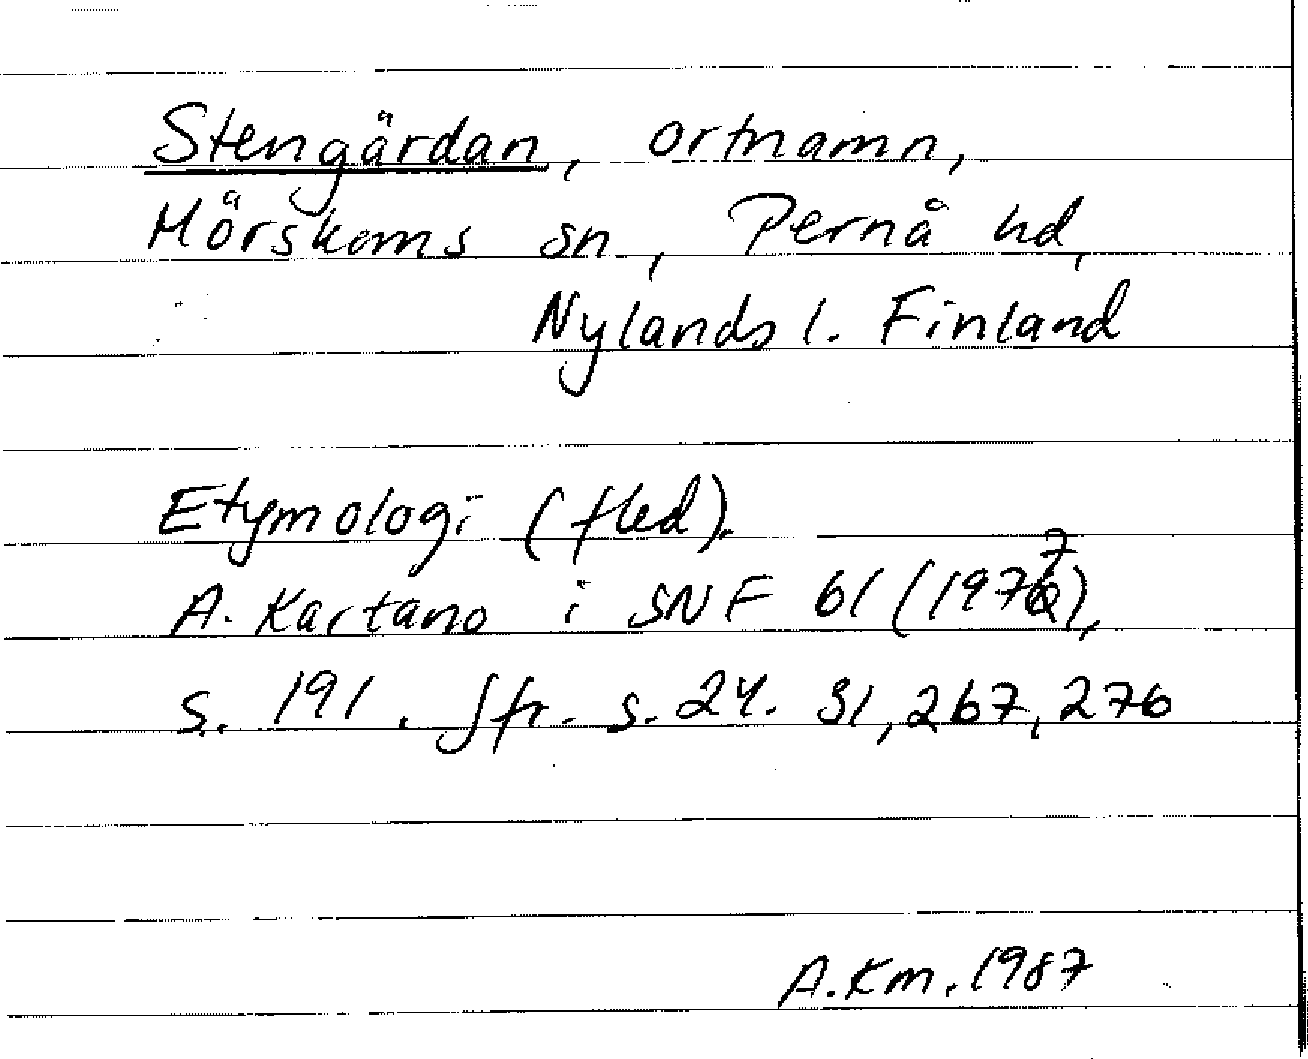 Stengärdan, ortnamn,
Mörskoms sn, Pernå hd,
Nylands l. Finland
Etymologi (fled).
A. Kartano i SNF 61 (1977),
s. 191. Jfr. s. 24. 31, 267, 276
A.Km. 1987